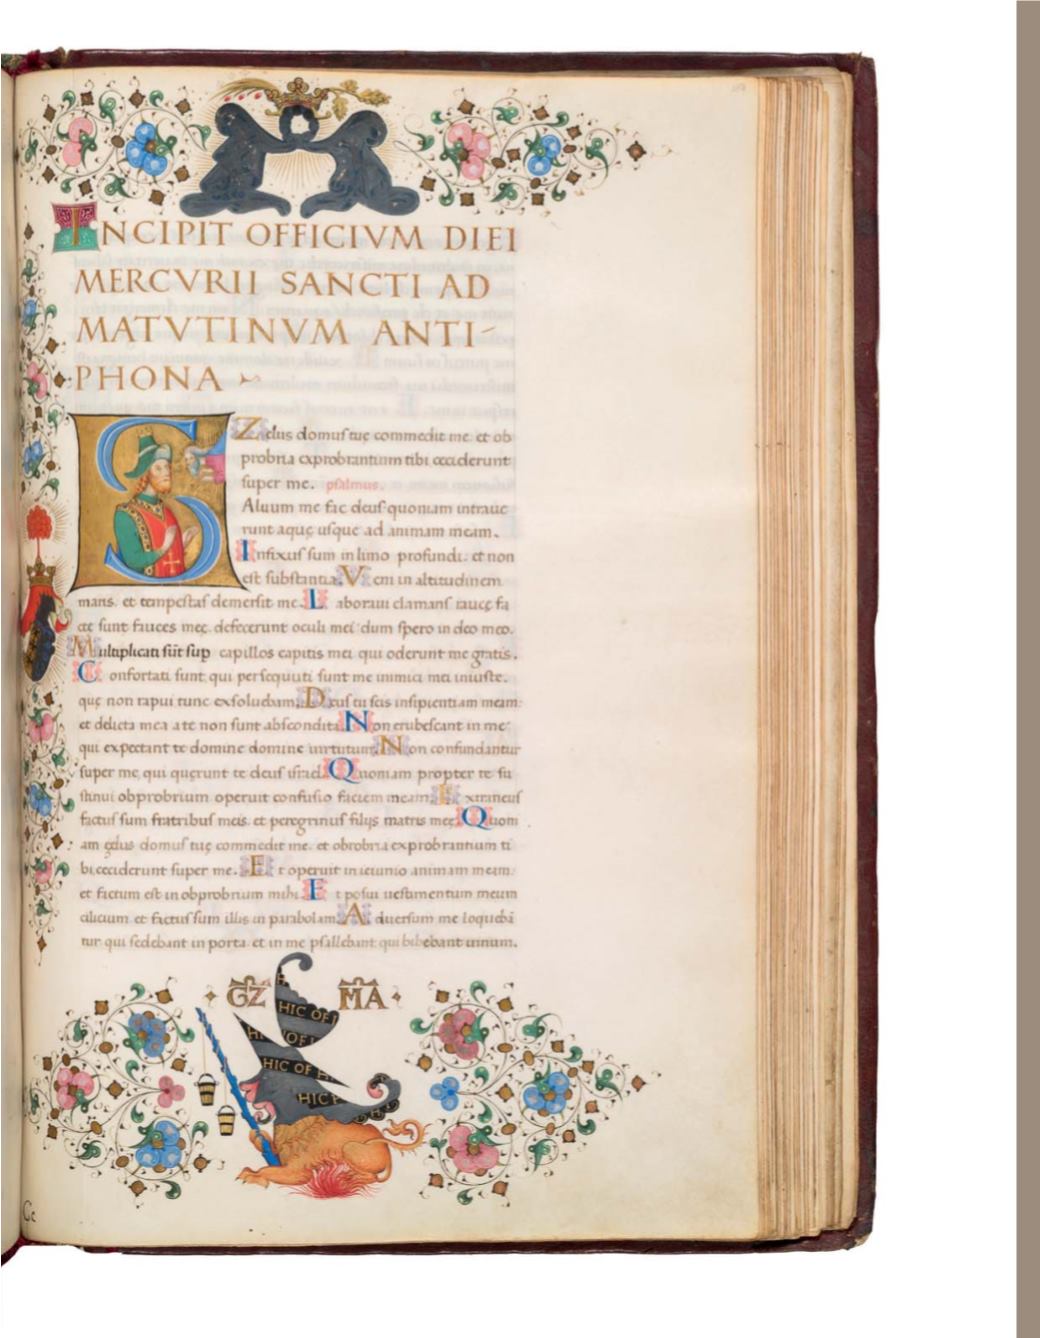 INCIPIT OFFICIVM DIEI
MERCVRII SANCTI AD
MATVTINVM ANTI-
PHONA
Zelus domus tuę commedit me. et ob
probria exprobrantium tibi ceciderunt
super me. psalmus.
SAluum me fac deus quoniam intraue
runt aquę usque ad animam meam.
Infixus sum in limo profundi. et non
est substantia. Veni in altitudinem
maris. et tempestas demersit me. Laboraui clamans raucę fa
ctę sunt fauces meę. defecerunt oculi mei dum spero in deo meo.
Multiplicati sūt sup capillos capitis mei qui oderunt me gratis.
Confortati sunt qui persequuti sunt me inimici mei iniuste.
quę non rapui tunc exsoluebam. Deus tu scis insipientiam meam.
et delicta mea a te non sunt abscondita. Non erubescant in me
qui expectant te domine domine uirtutum. Non confundantur
super me, qui quęrunt te deus israel. Quoniam propter te su
stinui obprobrium operuit confusio faciem meam. Extraneus
factus sum fratribus meis. et peregrinus filijs matris meę. Quoni
am zelus domus tuę commedit me. et obrobria exprobrantium ti
bi ceciderunt super me. Et operuit in ieiunio animam meam.
et factum est in obprobrium mihi. Et posui uestimentum meum
cilicium. et factus sum illis in parabolam. Aduersum me loqueb̄a
tur qui sedebant in porta. et in me psallebant qui bibebant uinum.
GZ MA
HIC OF
HI OF I
HIC OF H
HIC H
Cc